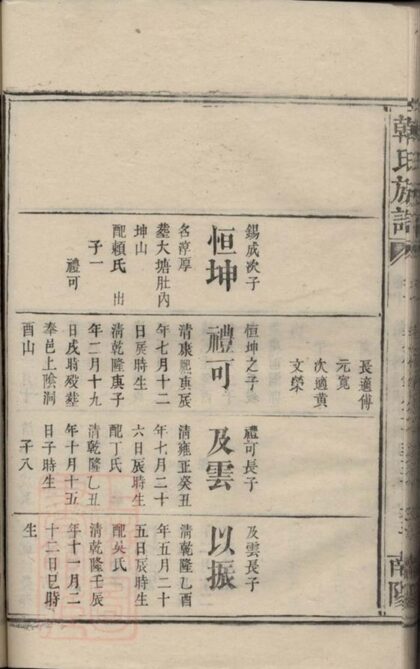 韓氏族譜
南陽
長適傅
元寬
次適黃
文榮
錫成次子
恒坤
名淳厚
墓大塘肚內
坤山
配賴氏 出
子一
禮可
恒坤之子
禮可
清康熙庚辰
年七月十二
日辰時生
清乾隆庚子
年二月十九
日戌時歿墓
奉邑上陰洞
酉山
禮可長子
及雲
清雍正癸丑
年七月二十
六日辰時生
配丁氏
清乾隆乙丑
年十月十五
日子時生
子八
及雲長子
以振
清乾隆乙酉
年五月二十
五日辰時生
配吳氏
清乾隆壬辰
年十一月二
十二日巳時
生